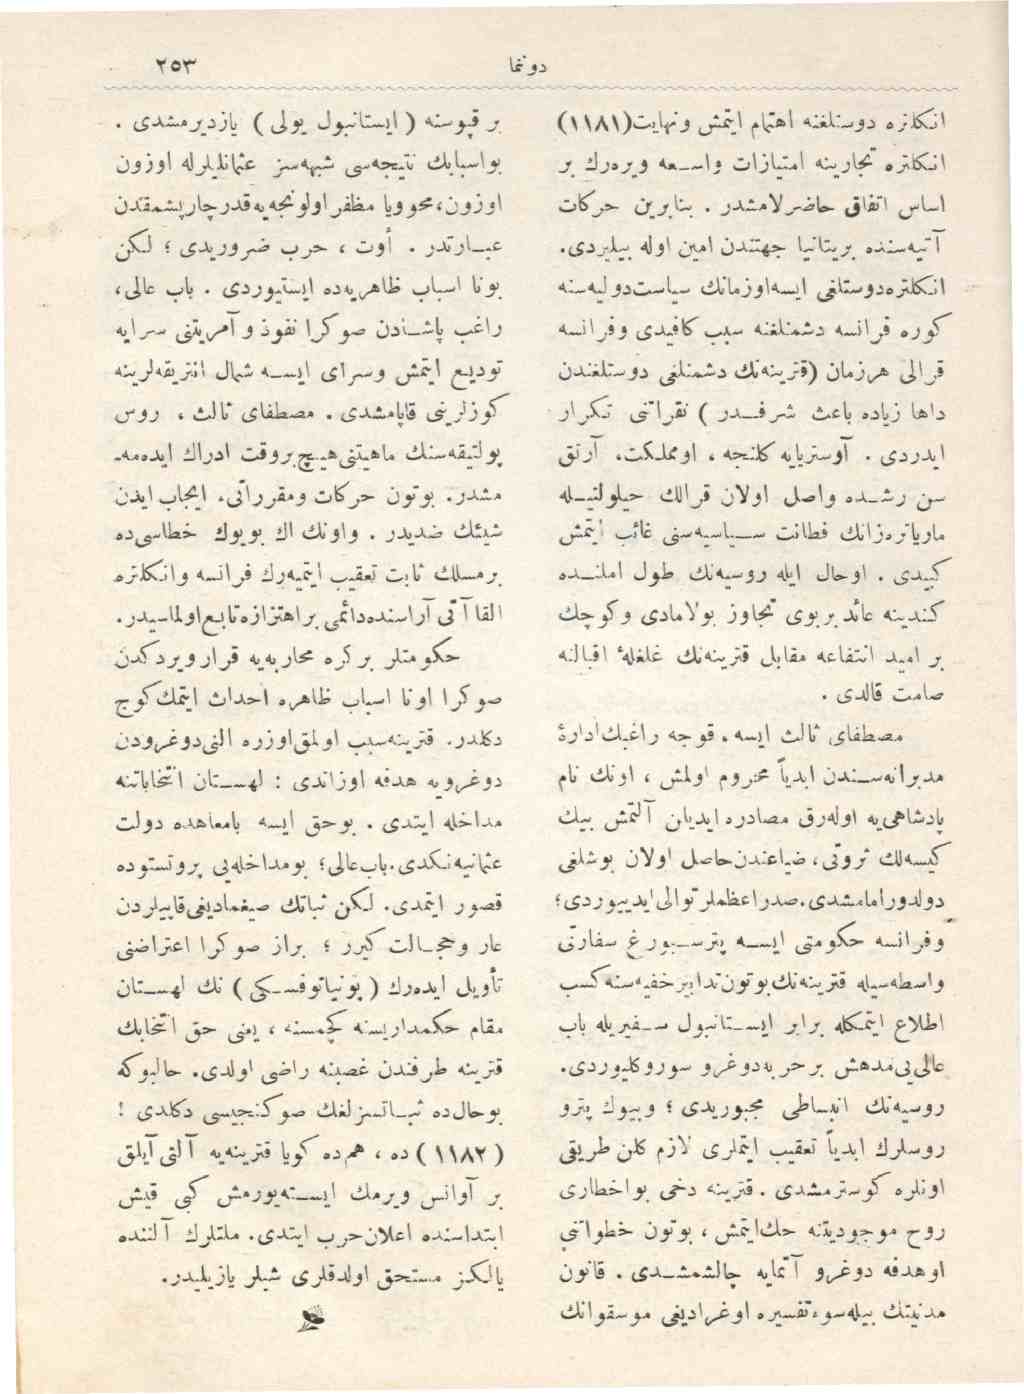 دوننما
٢٥٣
انكلتره دوستلغنه اهتمام ايتمش ونهايت(١١٨١)
انكلتره تجارينه امتيازات واسعه ويره‌رك بر
اساس اتفاق حاضرلامشدر . بنابرين حركات
آتيه‌سنده بريتانيا جهتندن امين اوله بيليردى.
انكلتره‌دوستلغى ايسه‌اوزمانك سياست‌دوليه‌سنه
كوره فرانسه دشمنلغنه سبب كافيدى وفرانسه
قرالى هرزمان (قترينه‌نك دشمنلغى دوستلغندن
داها زياده باعث شرفدر ) نقراتنى تكرار
ايدردى . آوستريايه كلنجه ، اومملكت، آرتق
سن رشده واصل اولان قرالك حيلولتيله
مارياتره‌زانك فطانت سياسيه‌سنى غائب ايتمش
كبيدى . اوحال ايله روسيه‌نك طول املنده
كندينه عائد بربوى تجاوز بولامادى وكوچك
بر اميد انتفاعه مقابل قترينه‌نك غلغلۀ اقبالنه
صامت قالدى .
مصطفاى ثالث ايسه ، قوجه راغبك‌ادارۀ
مدبرانه‌سندن ابدياً محروم اولمش ، اونك نام
پادشاهى‌يه اوله‌رق مصادره ايديان آلتمش بيك
كيسه‌لك ثروتى، ضياعندن‌حاصل اولان بوشلغى
دولدورامامشدى.صدراعظملر توالى‌ايدييوردى؛
وفرانسه حكومتى ايسه پترسبورغ سفارتى
واسطه‌سيله قترينه‌نك‌بوتون‌تدابيرخفيه‌سنه كسب
اطلاع ايتمكله برابر ايستانبول سفيريله باب
عالى‌يى‌مدهش برحربه‌دوغرو سوروكليوردى.
روسيه‌نك انبساطى مجبوريدى ؛ وبيوك پترو
روسلرك ابدياً تعقيب ايتملرى لازم كلن طريقى
اونلره كوسترمشدى . قترينه دخى بواخطارى
روح موجوديتنه حك‌ايتمش ، بوتون خطواتنى
اوهدفه دوغرو آتمايه چالشمشدى . قانون
مدنيتك بيله‌سوءتفسيره اوغراديغى موسقوانك
بر قپوسنه ( ايستانبول يولى ) يازديرمشدى .
بواسبابك نتيجه‌سى شبهه‌سز عثمانليلرله اوزون
اوزون،محوويا مظفر اولونجه‌يه‌قدرچارپيشمقدن
عبارتدر . اَوت ، حرب ضروريدى ؛ لكن
بونا اسباب ظاهريه‌ده ايستيوردى . باب عالى،
راغب پاشادن صوكرا نفوذ و آمريتنى سرايه
توديع ايتمش وسراى ايسه شمال انتريقه‌لرينه
كوزلرينى قاپامشدى . مصطفاى ثالث ، روس
پولتيقه‌سنك ماهيتنى‌هيچ‌بروقت ادراك ايده‌مه‌ـ
مشدر. بوتون حركات ومقرراتى، ايجاب ايدن
شيئك ضديدر . واونك اك بويوك خطاسى‌ده
برمسلك ثابت تعقيب ايتميه‌رك فرانسه وانكلتره
القا آتى آراسنده‌دائمى براهتزازه‌تابع‌اولماسيدر.
حكومتلر بركره محاربه‌يه قرارويردكدن
صوكرا اونا اسباب ظاهره احداث ايتمك‌كوج
دكلدر. قترينه‌سبب اولمق‌اوزره الني‌دوغرودن
دوغرويه هدفه اوزاتدى : لهستان انتخاباتنه
مداخله ايتدى . بوحق ايسه بامعاهده دولت
عثمانيه‌نكدى.باب‌عالى؛ بومداخله‌يى پروتستوده
قصور ايتمدى. لكن ثباتك صيغماديغى‌قاپيلردن
عار وحجالت كيرر ؛ براز صوكرا اعتراضنى
تأويل ايده‌رك ( پونياتوفسكى ) نك لهستان
مقام حكمداريسنه كچمسنه ، يعنى حق انتخابك
قترينه طرفندن غصبنه راضى اولدى. حالبوكه
بوحال‌ده ثباتسزلغك صوكنجيسى دكلدى !
( ١١٨٢ ) ده ، هم‌ده كويا قترينه‌يه آلتى‌آيلق
بر آوانس ويرمك ايسته‌يورمش كبى قيش
ابتداسنده اعلان‌حرب ايتدى. ملتلرك آلننده
يالكز مستحق اولدقلرى شيلر يازيليدر.